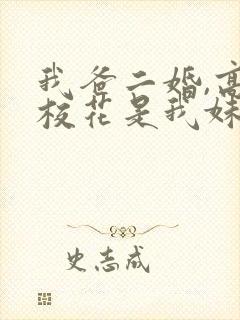 我爸二婚,高
校花是我妹
史志成